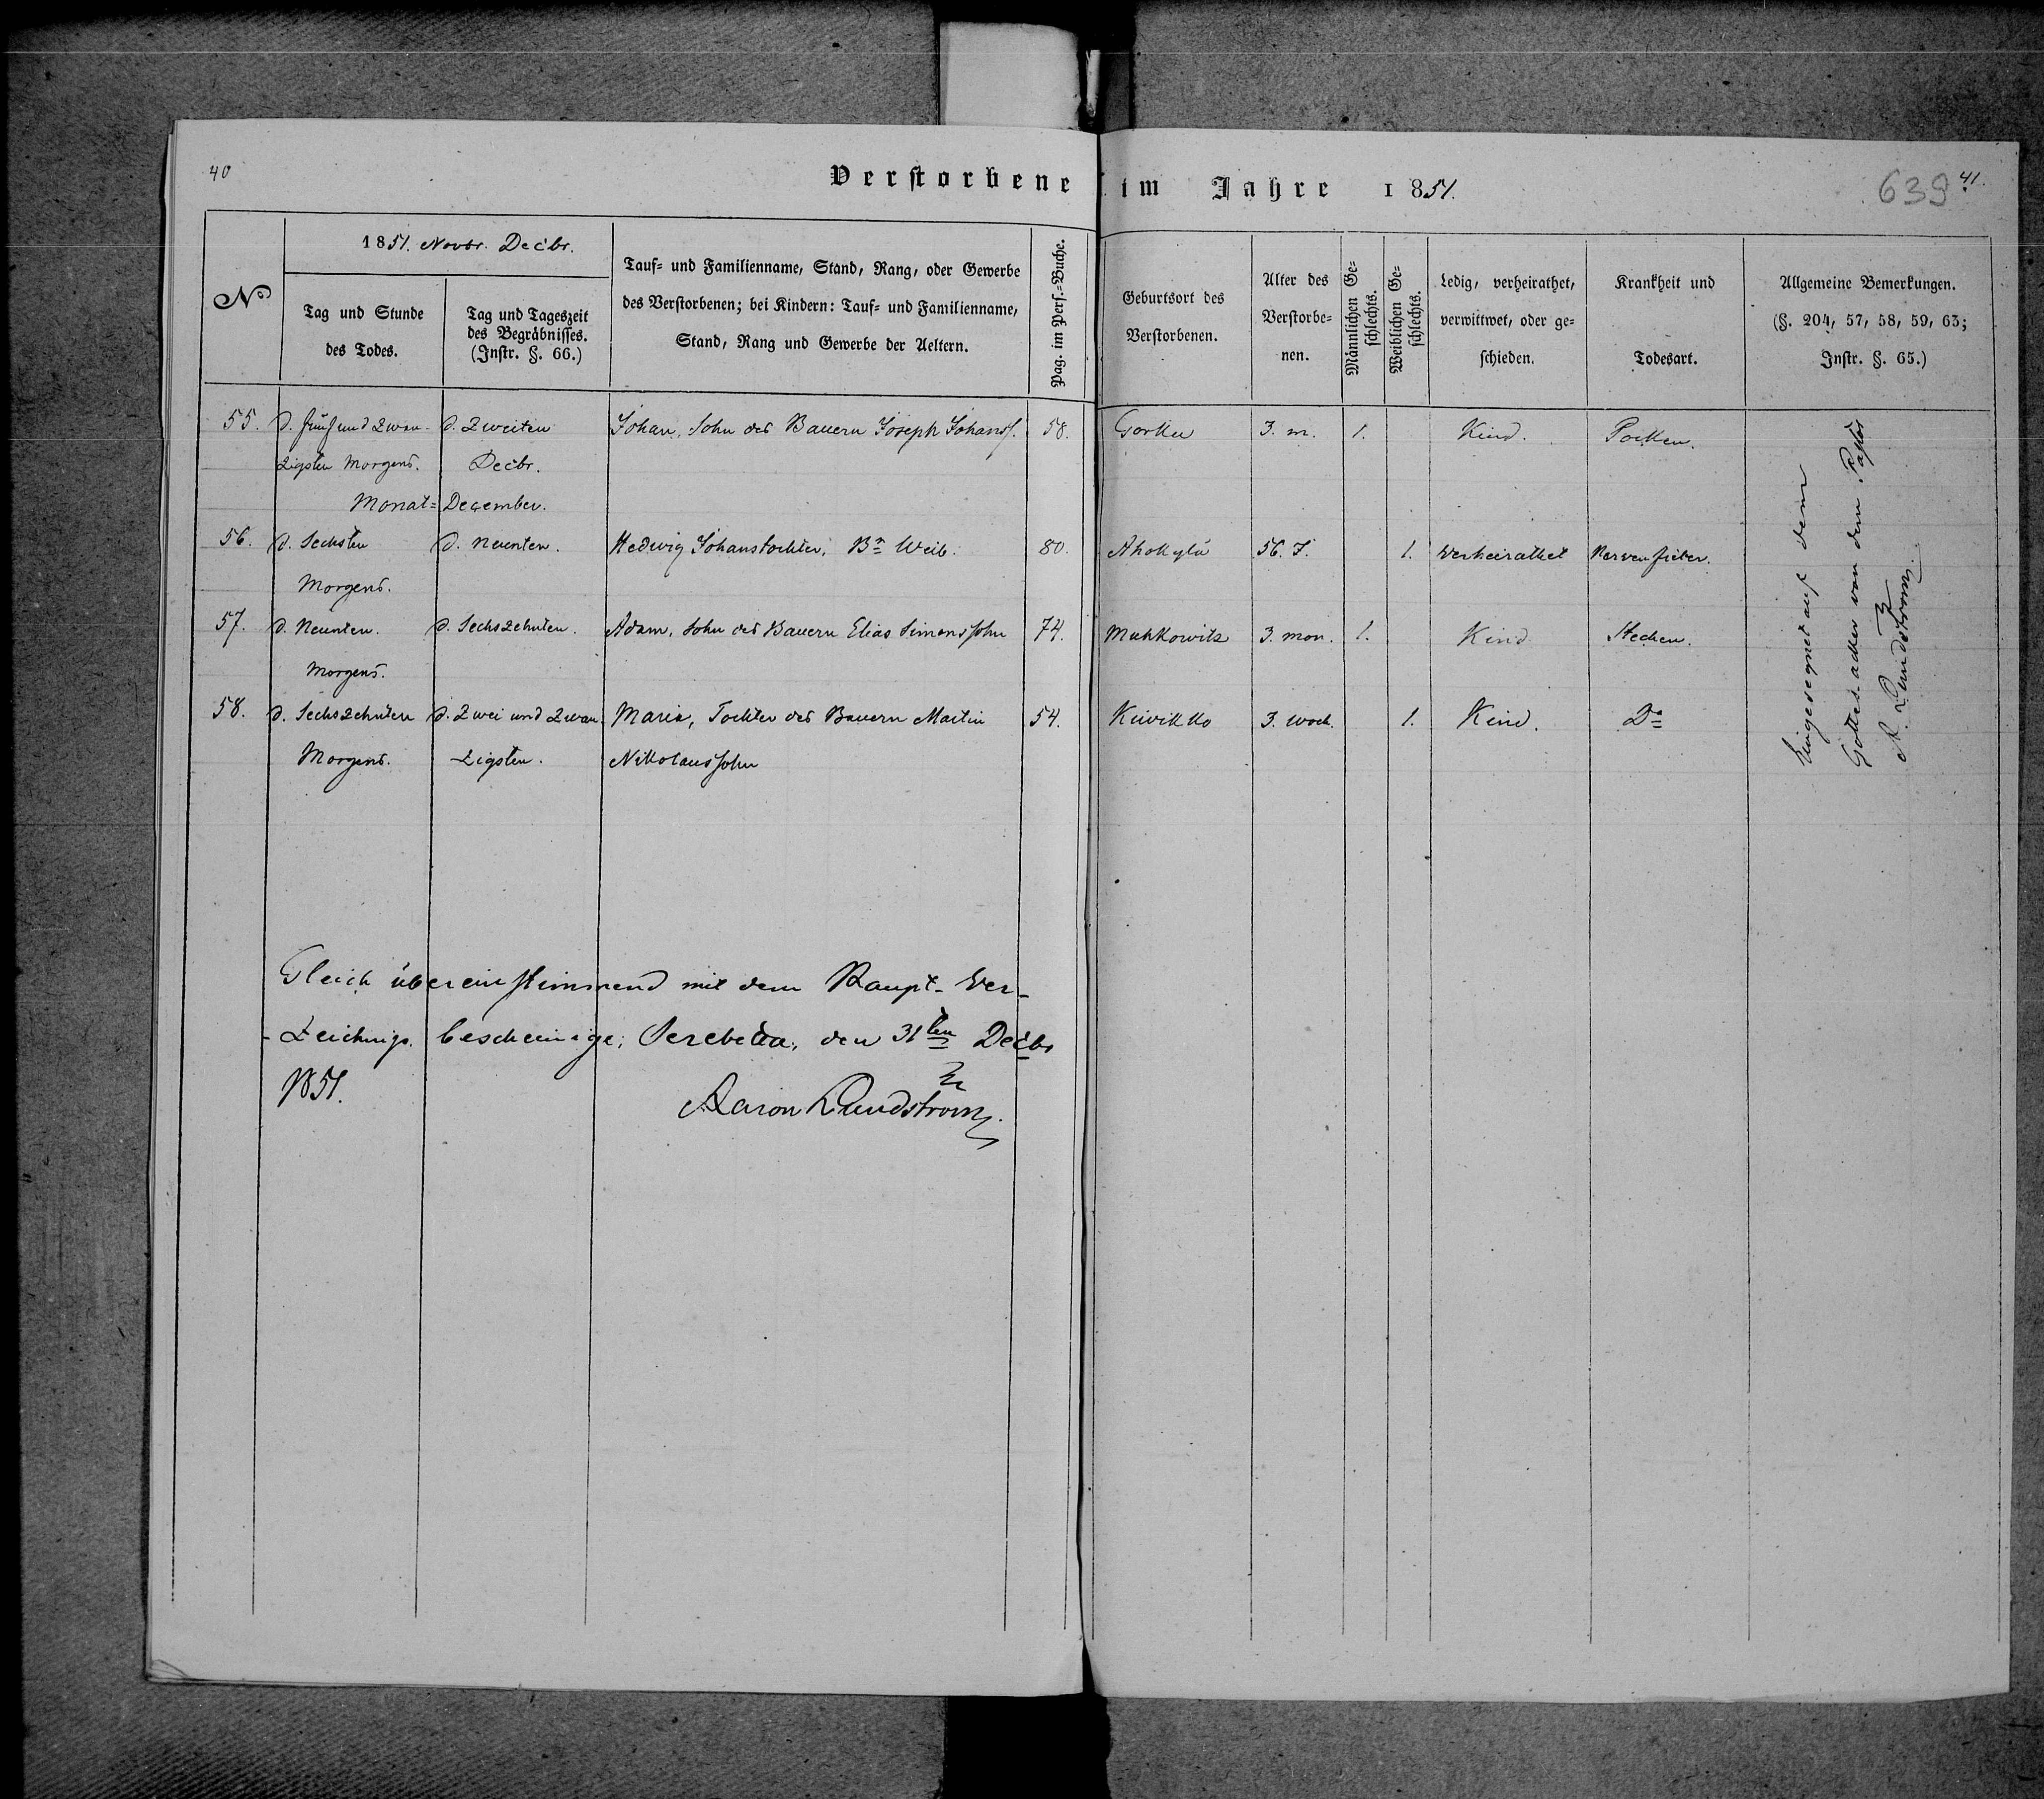 40
Verstorbene im Jahre 1851.
639 41.
1851. Novbr. Decbr.
No
Tag und Stunde
des Todes.
Tag und Tageszeit
des Begräbnisses.
(Instr. §. 66.)
Tauf- und Familienname, Stand, Rang, oder Gewerbe
des Verstorbenen; bei Kindern: Tauf- und Familienname,
Stand, Rang und Gewerbe der Aeltern.
Pag. im Pers.-Buche.
Geburtsort des
Verstorbenen.
Alter des
Verstorbe-
nen.
Männlichen Ge-
schlechts.
Weiblichen Ge-
schlechts.
Ledig, verheirathet,
verwittwet, oder ge-
schieden.
Krankheit und
Todesart.
Allgemeine Bemerkungen.
(§. 204, 57, 58, 59, 63;
Instr. §. 65.)
55. d. fünf und Zwan- d. Zweiten Johan, Sohn des Bauern Joseph Johanss. 58. Gorku 3. m. 1. Kind. Pocken.
zigsten Morgens. Decbr.
Monat= December.
56. d. Sechsten d. Neunten. Hedwig Johanstochter, Brn Weib. 80. Ahokylä 56. J. 1. Verheirathet Nervenfieber.
Morgens.
57. d. Neunten. d. Sechszehnten. Adam, Sohn des Bauern Elias Simonssohn 74. Muhkowitz 3. mon. 1. Kind Stechen.
Morgens.
58. d. Sechszehnten d. Zwei und Zwan- Maria, Tochter des Bauern Martin 54. Kiwikko 3. woch. 1. Kind. Do
Morgens. zigsten. Nikolaussohn
Eingesegnet auf dem
Gottesacker von dem Pastor
A. Lundstrom.
Gleich übereinstimmend mit dem Haupt-Ver-
-zeichniss. bescheinige; Serebetta, den 31ten Decbr
1851.
Aaron Lundstrom.